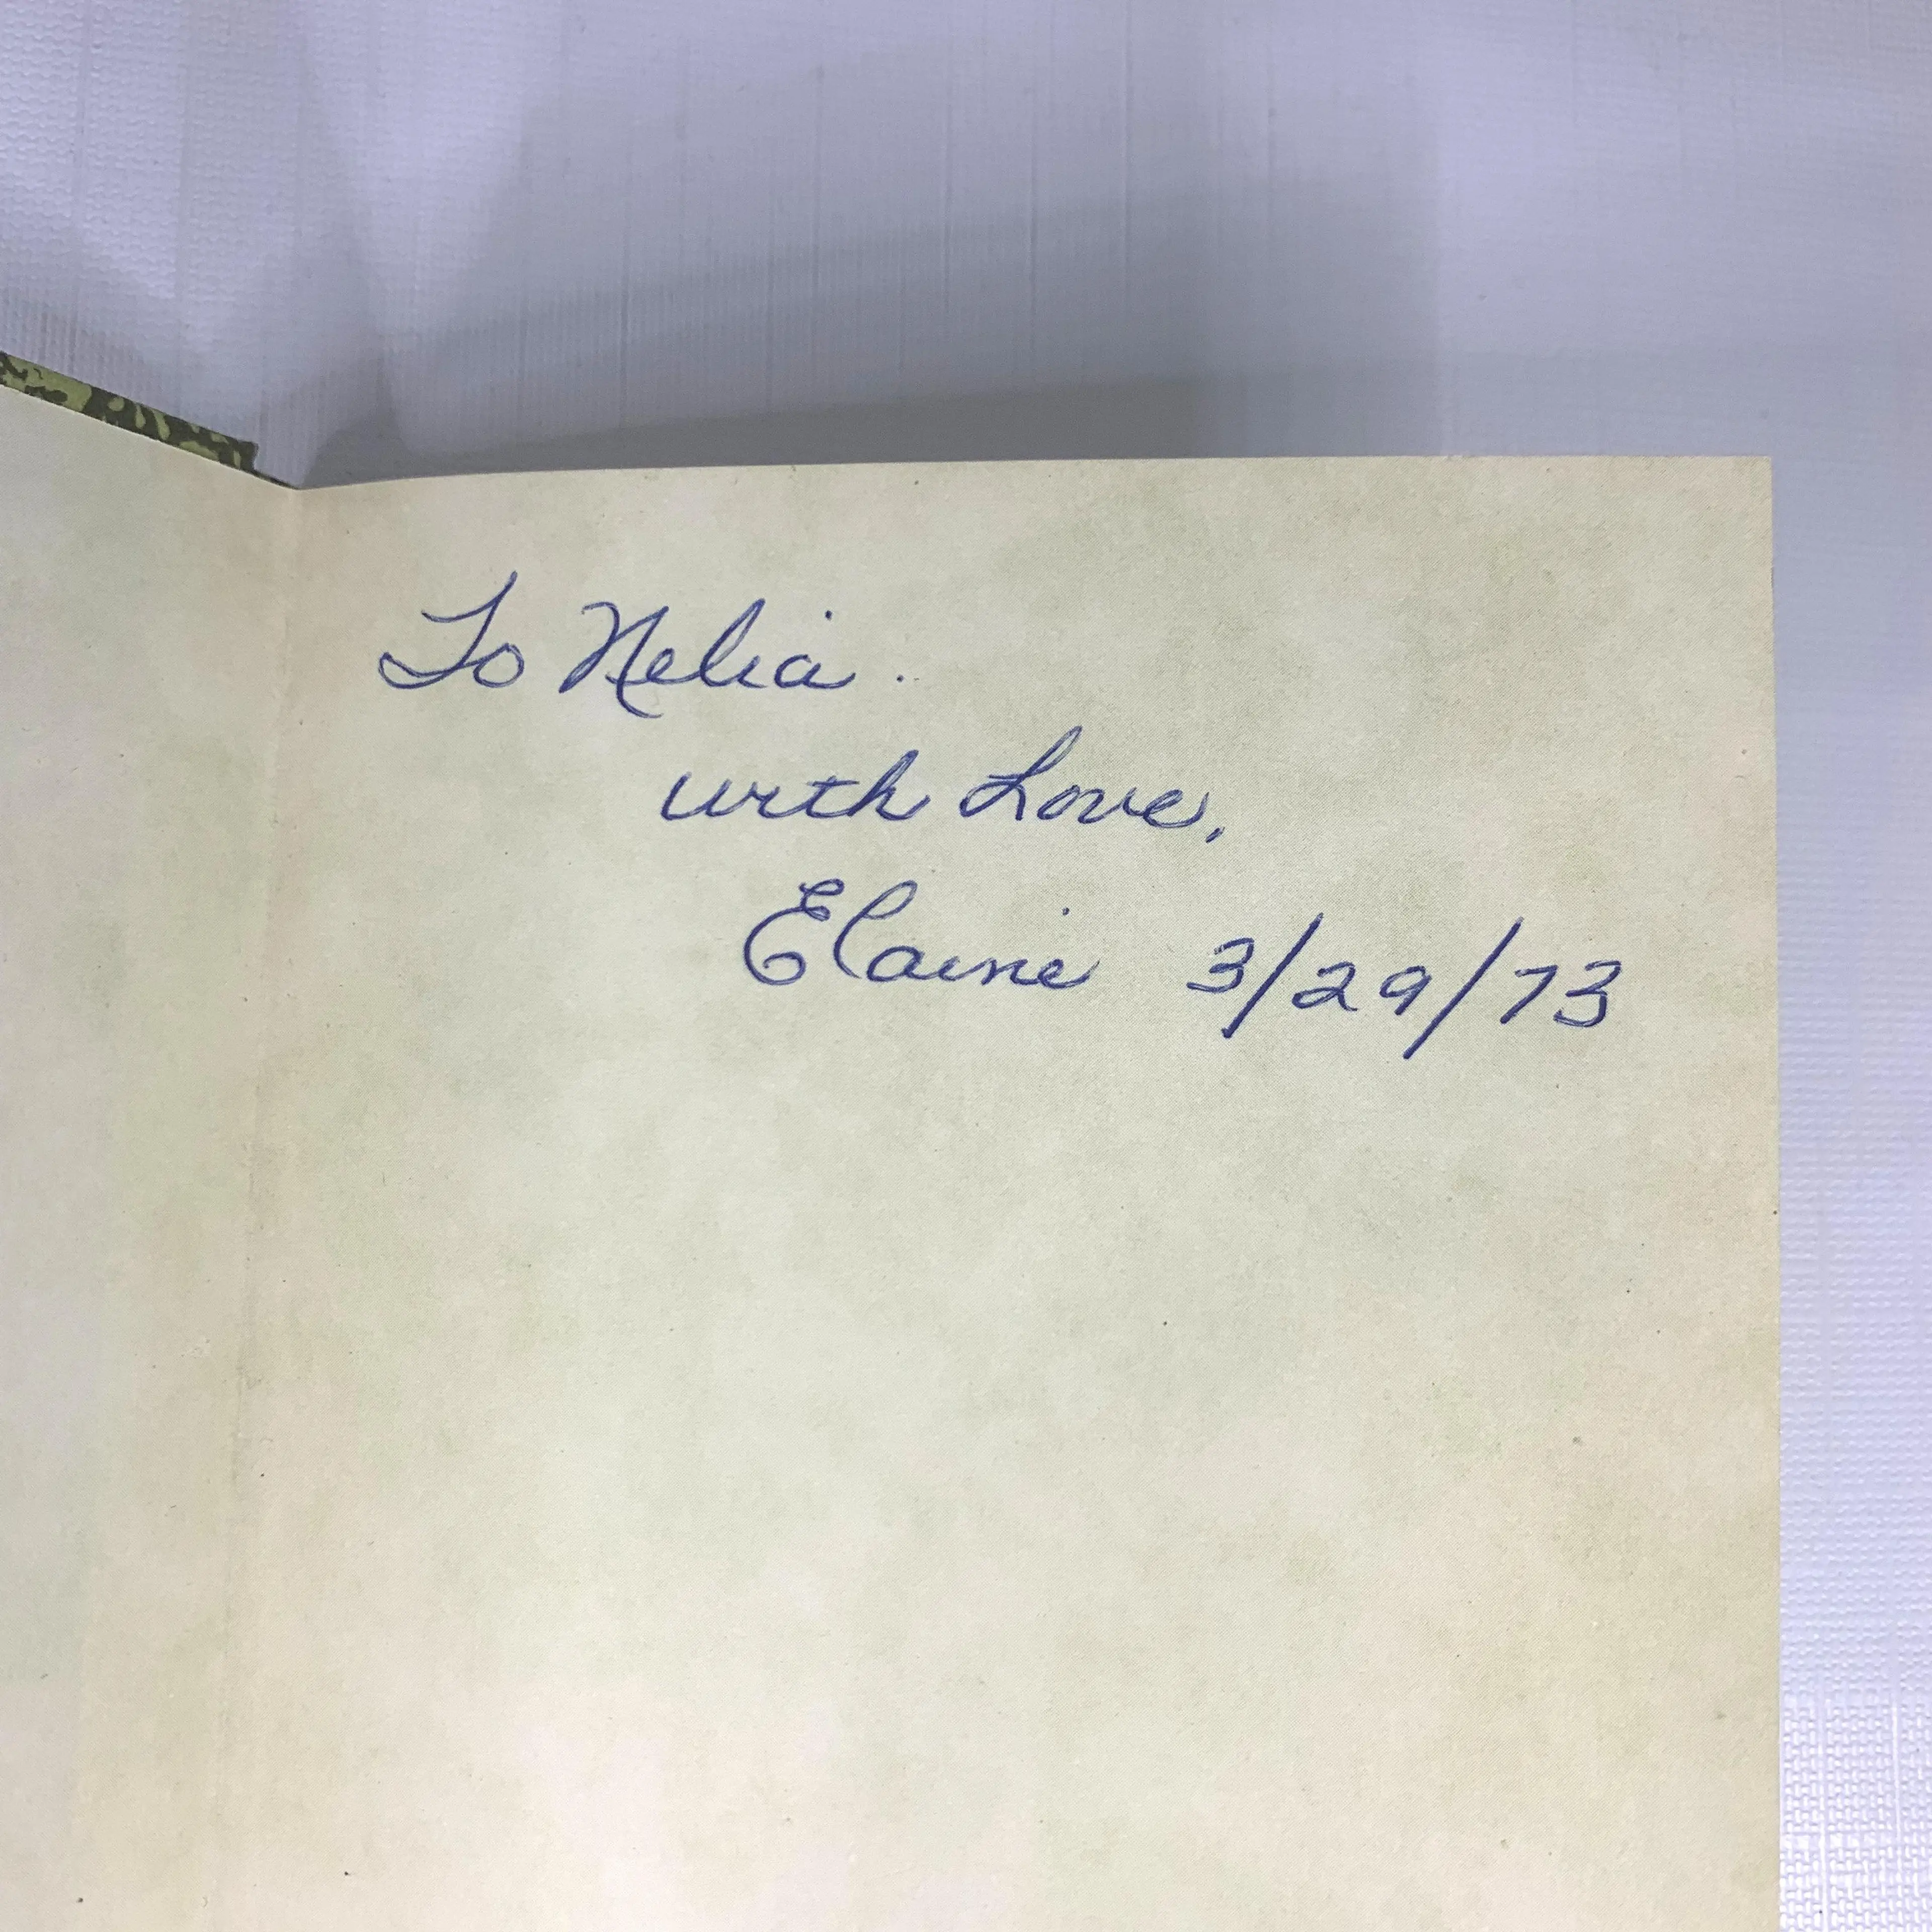 To Nelia.
with Love,
Elaine 3/29/73